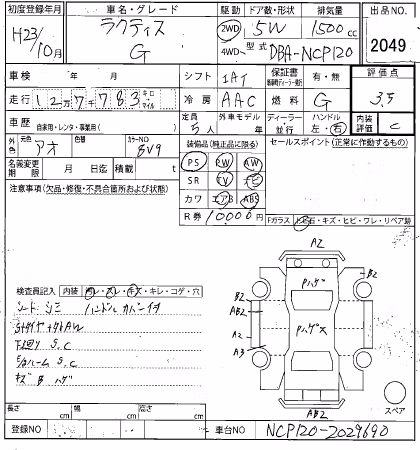 初度登録年月 車名・グレード 駆動 ドア数・形状 排気量 出品NO.
H23/10月 ラクティス G 2WD 5W 1500cc 2049
4WD 型式 DBA-NCP120
車検 年 月 シフト IAT 保証書 有・無 評価点
走行 12万7千783 キロ マイル 冷房 AAC 燃料 G 3.5
車歴 自家用・レンタ・事業用( ) 定員 5人 外車モデル 年 ディーラー 並行 ハンドル 左・右 内装評価 C
外色 元色 アオ 色替 カラーNO 8V9 装備品(純正品に限る) セールスポイント(正常に作動するもの)
名義変更期限 月 日迄 積載 t PS PW AW
注意事項(欠品・修復・不具合箇所および状態) SR TV ナビ
カワ エアB ABS
R券 10000円 Fガラス トビ石・キズ・ヒビ・ワレ・リペア跡
A2
検査員記入 内装 汚レ・スレ・キズ・キレ・コゲ・穴
シート シミ ハンドル カバーイタ
下廻り S.C
S.C
キズ B ハゲ
Pハゲ
B2
B2
AB2
A2
A3
Pハゲス
AB2
スペア
長さ cm 幅 cm 高さ cm
登録NO 車台NO NCP120-2029690